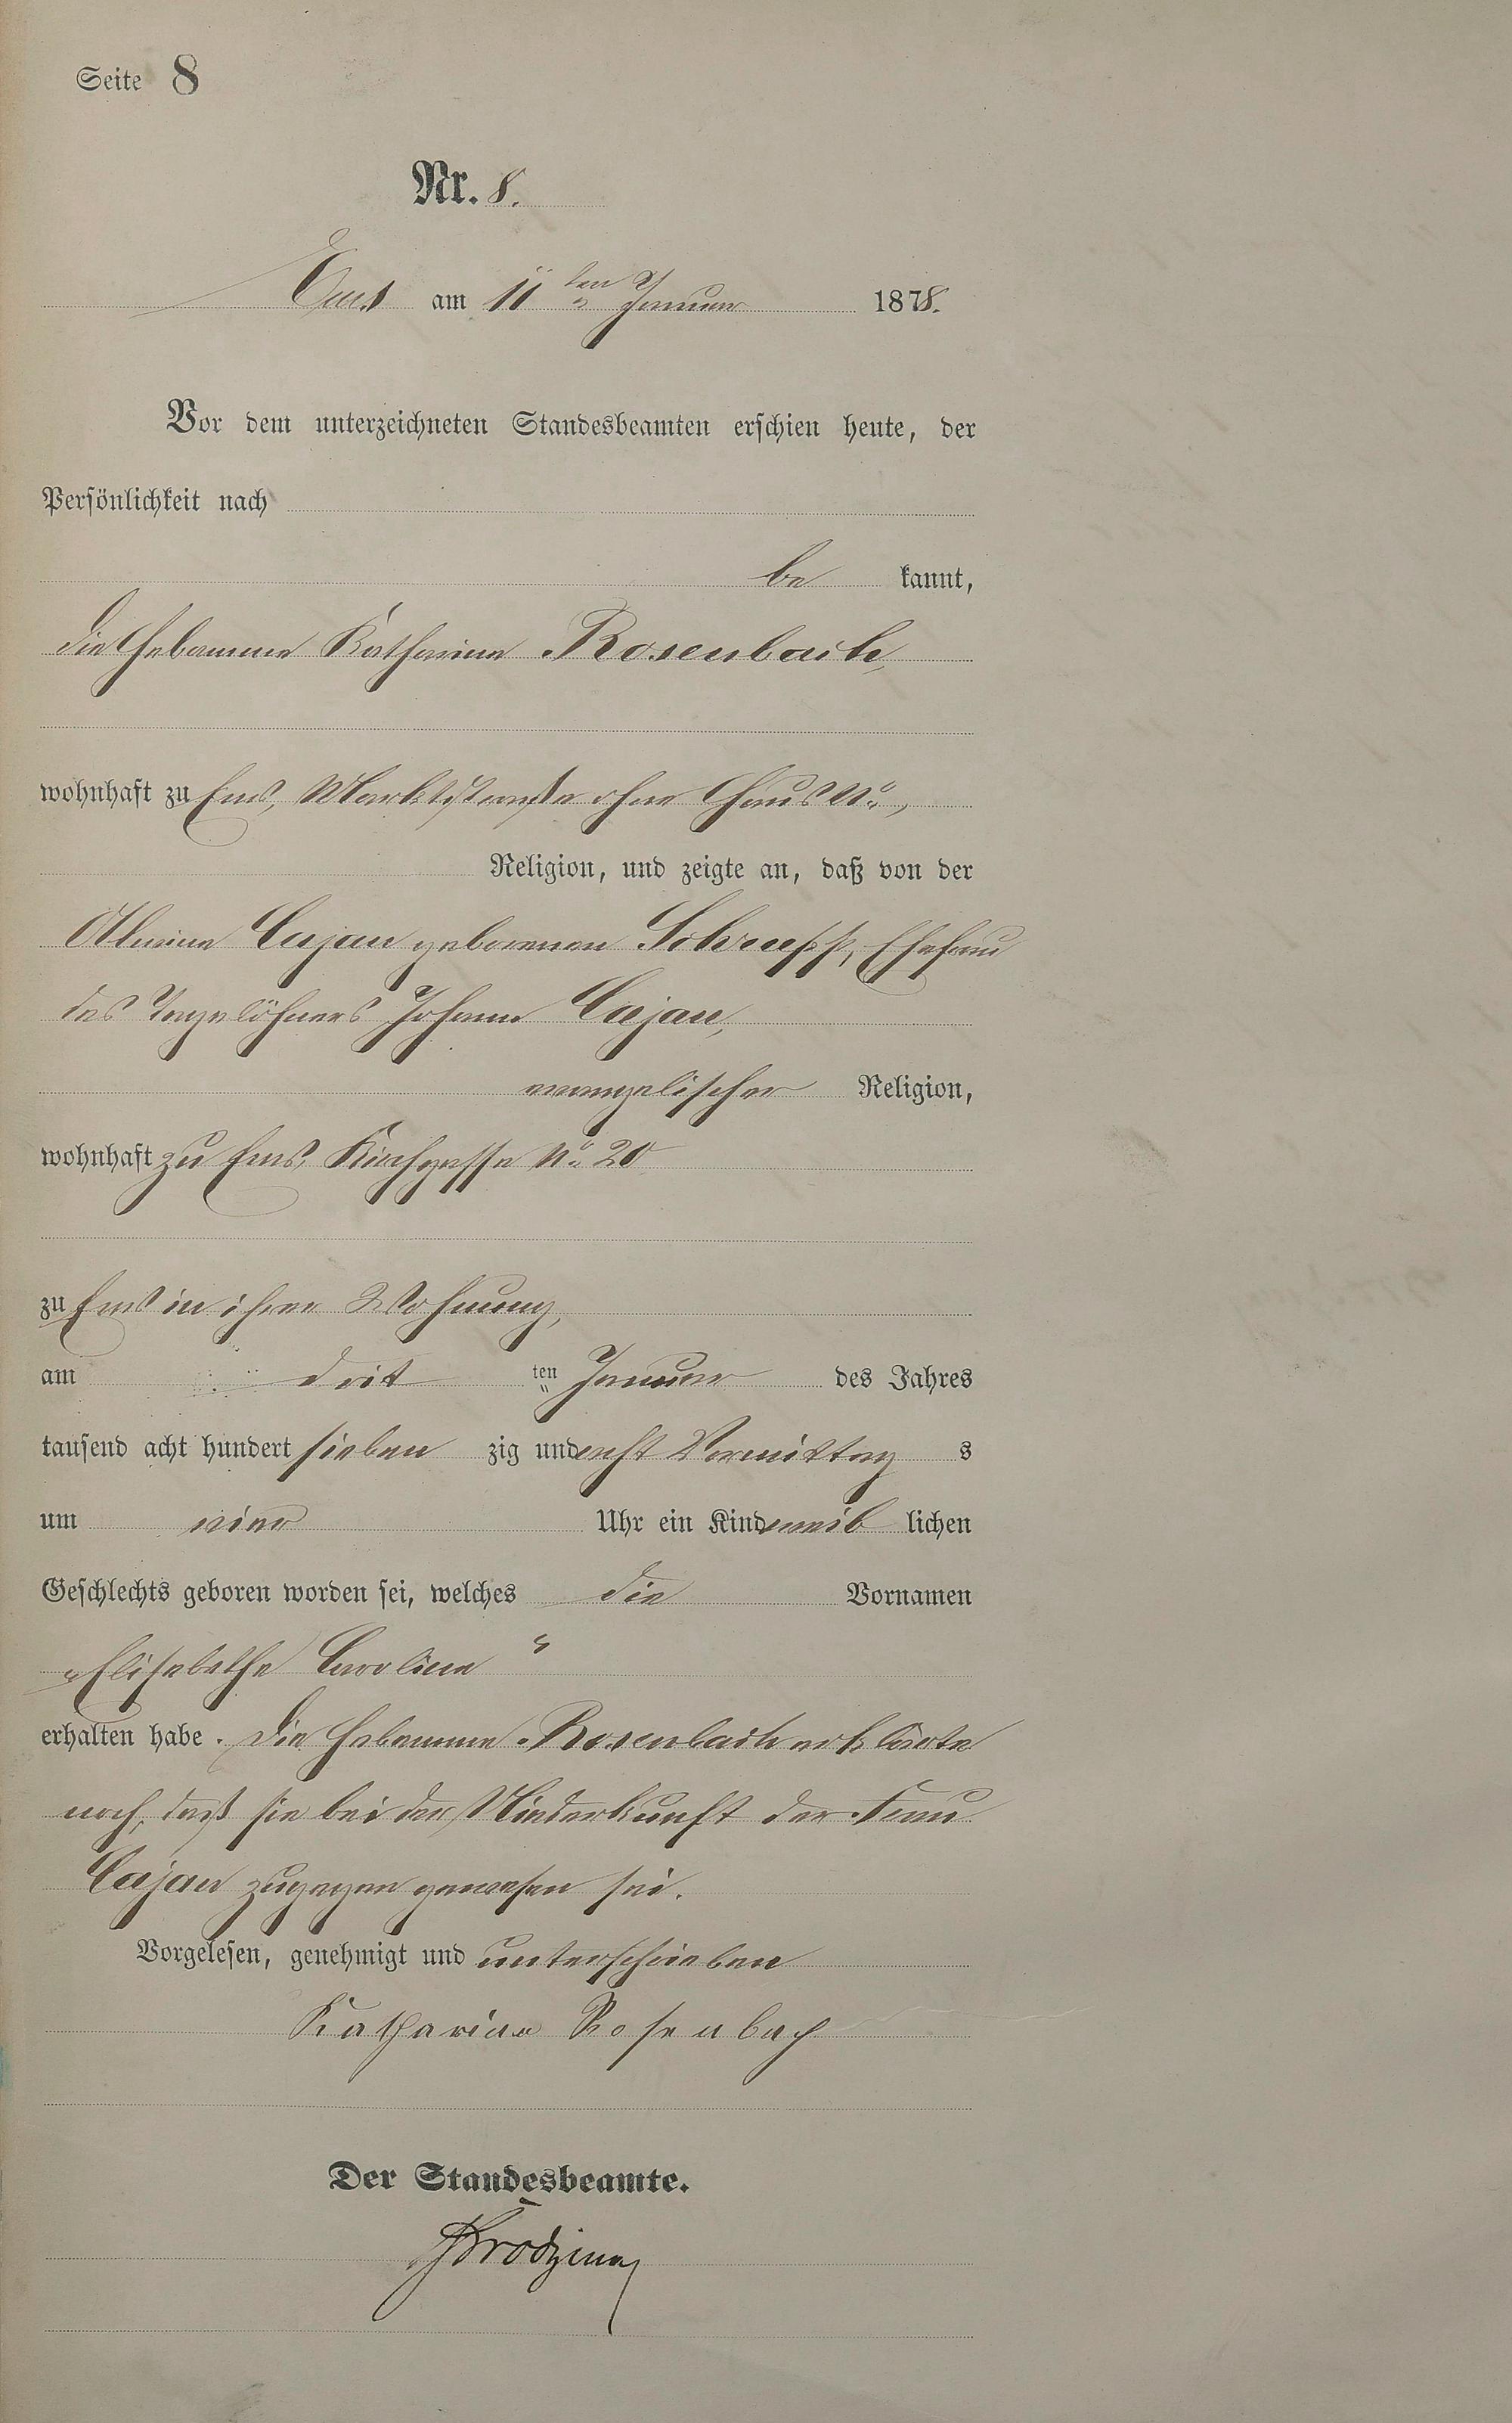 Seite 8
Nr. 8.
Ems am 11ten Januar 1878.
Vor dem unterzeichneten Standesbeamten erschien heute, der
Persönlichkeit nach
be kannt,
die Hebamme Katharina Rosenbach,
wohnhaft zu Ems, Marktstraße ohne Haus No,
Religion, und zeigte an, daß von der
Cajan geborenen Schrupp, Ehefrau
des Tagelöhners Johann Cajan,
evangelischer Religion,
wohnhaft zu Ems, Kirchgasse No 20
zu Ems in ihrer Wohnung,
am drit ten Januar des Jahres
tausend acht hundert sieben zig und acht Vormittag s
um vier Uhr ein Kind weib lichen
Geschlechts geboren worden sei, welches die Vornamen
"Elisabethe Caroline"
erhalten habe. Die Hebamme Rosenbach erklärte
noch, daß sie bei der Niederkunft der Frau
Cajan zugegen gewesen sei.
Vorgelesen, genehmigt und unterschrieben
Katharina Rosenbach
Der Standesbeamte.